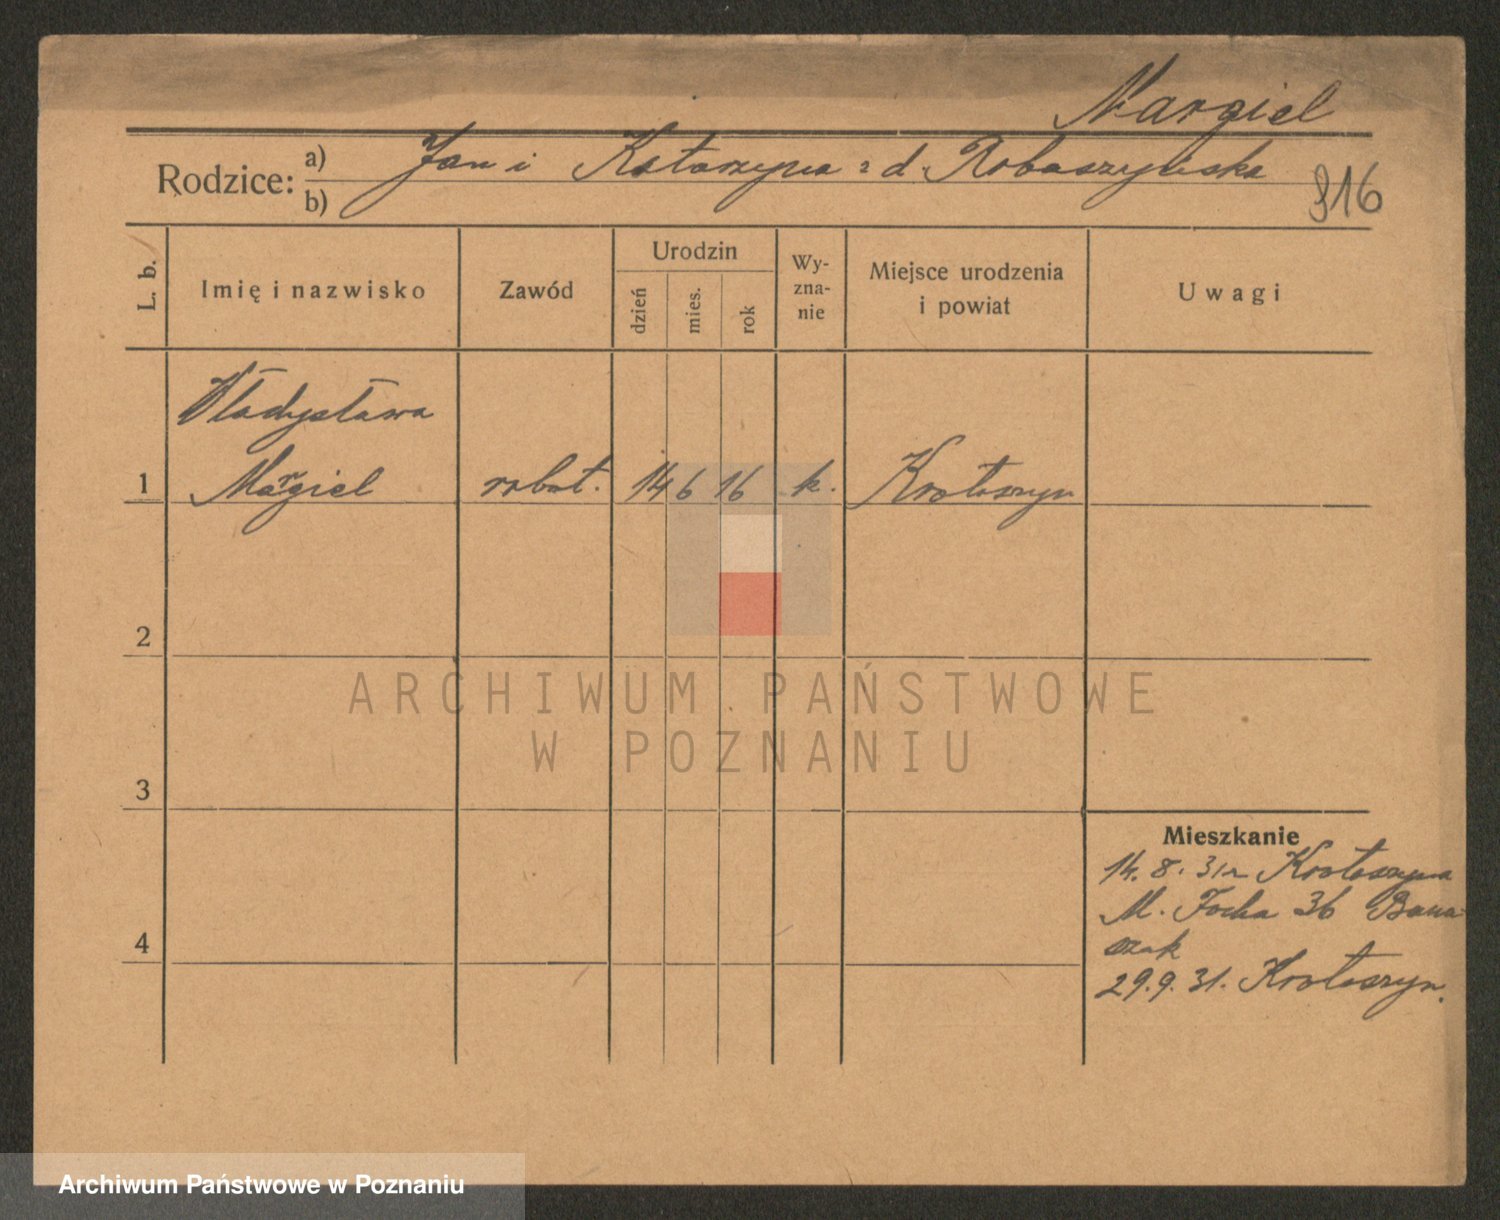 Margiel
Rodzice: a) Jan i Katarzyna z d. Robaszyńska
b)
816
L. b.
Imię i nazwisko
Zawód
Urodzin
dzień
mies.
rok
Wy-
zna-
nie
Miejsce urodzenia
i powiat
Uwagi
Władysława
1 Margiel robot. 14 6 16 k. Krotoszyn
2
3
4
Mieszkanie
14. 8. 31 r Krotoszyna
M. Focha 36 Bana
szak
29. 9. 31. Krotoszyn.
ARCHIWUM PAŃSTWOWE
W POZNANIU
Archiwum Państwowe w Poznaniu